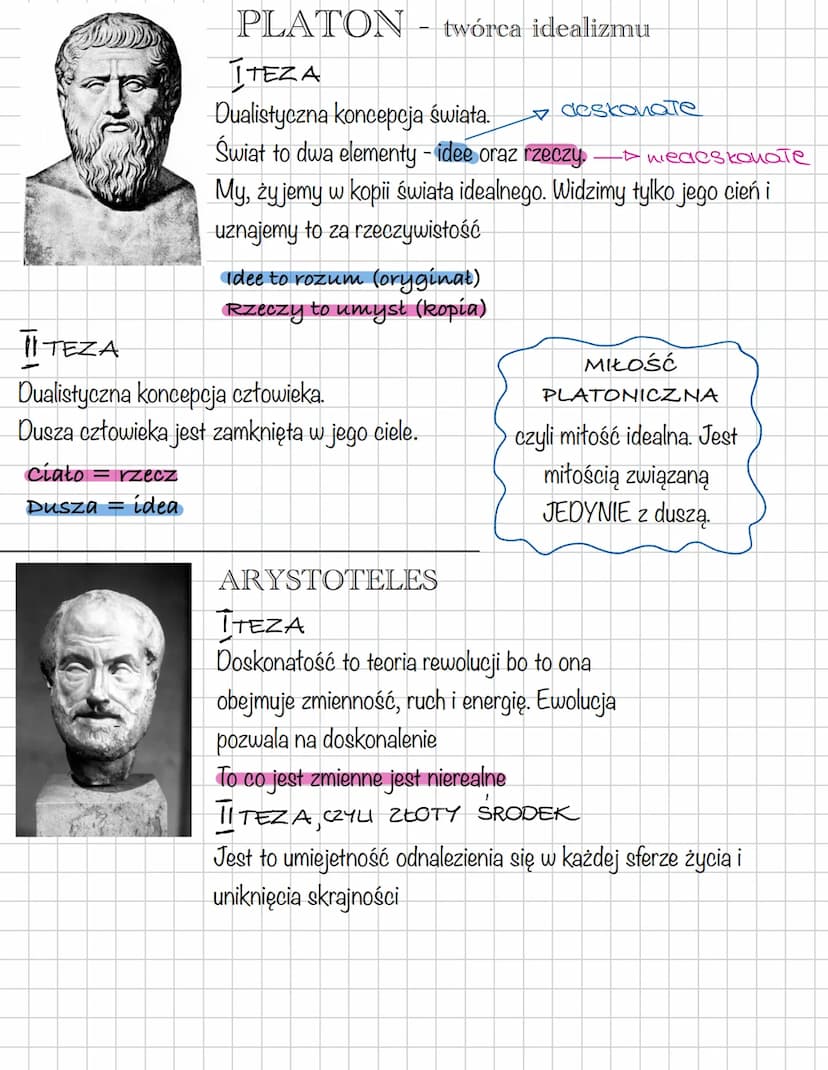 PLATON - twórca idealizmu
I TEZA
Dualistyczna koncepcja świata.
doskonałe
Świat to dwa elementy - idee oraz rzeczy.
niedoskonałe
My, żyjemy w kopii świata idealnego. Widzimy tylko jego cień i
uznajemy to za rzeczywistość
Idee to rozum (oryginał)
Rzeczy to umysł (kopia)
II TEZA
Dualistyczna koncepcja człowieka.
Dusza człowieka jest zamknięta w jego ciele.
Ciało = rzecz
Dusza = idea
MIŁOŚĆ
PLATONICZNA
czyli miłość idealna. Jest
miłością związaną
JEDYNIE z duszą.
ARYSTOTELES
I TEZA
Doskonałość to teoria rewolucji bo to ona
obejmuje zmienność, ruch i energię. Ewolucja
pozwala na doskonalenie
To co jest zmienne jest nierealne
II TEZA, CZYLI ZŁOTY ŚRODEK
Jest to umiejetność odnalezienia się w każdej sferze życia i
uniknięcia skrajności